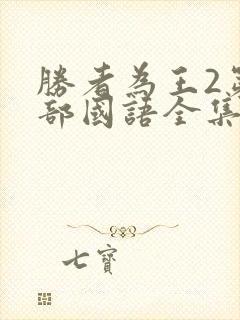 勝者為王2第
部國語全集
七寶